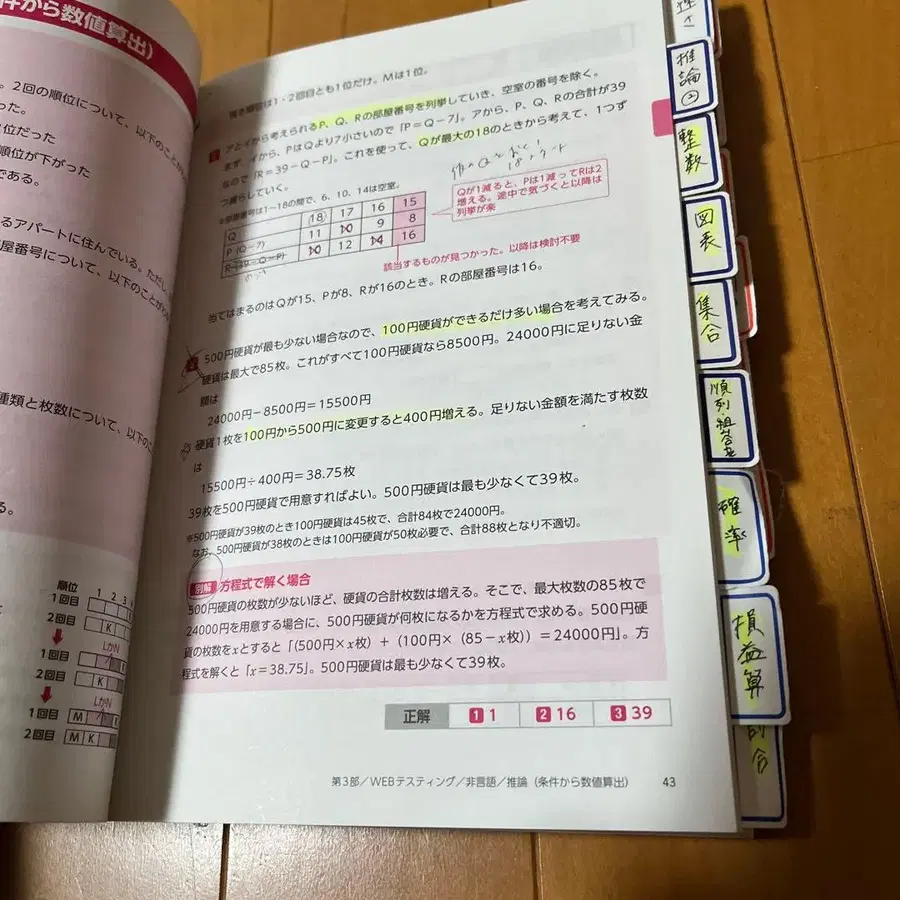 件から数値算出)
。2回の順位について、以下のこと
った。
位だった
順位が下がった
である。
るアパートに住んでいる。ただし
屋番号について、以下のことがわ
種類と枚数について、以下のこ
る。
順位
1 2 3
1回目
2回目
K
LかN
1回目
2回目
K
LかN
1回目
M
2回目
M K
1・2回目とも1位だけ。Mは1位。
アとイから考えられるP、Q、Rの部屋番号を列挙していき、空室の番号を除く。
まず、イから、PはQより7小さいので「P=Q-7」。アから、P、Q、Rの合計が39
なので「R=39-Q-P」。これを使って、Qが最大の18のときから考えて、1つず
つ減らしていく。
※部屋番号は1~18の間で、6、10、14は空室。
Q 18 17 16 15
P (Q-7) 11 10 9 8
R (39-Q-P) 10 12 14 16
Qが1減ると、Pは1減ってRは2
増える。途中で気づくと以降は
列挙が楽
該当するものが見つかった。以降は検討不要
当てはまるのはQが15、Pが8、Rが16のとき。Rの部屋番号は16。
500円硬貨が最も少ない場合なので、100円硬貨ができるだけ多い場合を考えてみる。
硬貨は最大で85枚。これがすべて100円硬貨なら8500円。24000円に足りない金
額は
24000円-8500円=15500円
硬貨1枚を100円から500円に変更すると400円増える。足りない金額を満たす枚数
は
15500円÷400円=38.75枚
39枚を500円硬貨で用意すればよい。500円硬貨は最も少なくて39枚。
※500円硬貨が39枚のとき100円硬貨は45枚で、合計84枚で24000円。
なお、500円硬貨が38枚のときは100円硬貨が50枚必要で、合計88枚となり不適切。
別解 方程式で解く場合
500円硬貨の枚数が少ないほど、硬貨の合計枚数は増える。そこで、最大枚数の85枚で
24000円を用意する場合に、500円硬貨が何枚になるかを方程式で求める。500円硬
貨の枚数をxとすると「(500円×x枚)+(100円×(85-x枚))=24000円」。方
程式を解くと「x=38.75」。500円硬貨は最も少なくて39枚。
正解 1 1 2 16 3 39
第3部/WEBテスティング/非言語/推論(条件から数値算出) 43
推論②
整数
図表
集合
順列・組合せ
確率
損益算
割合